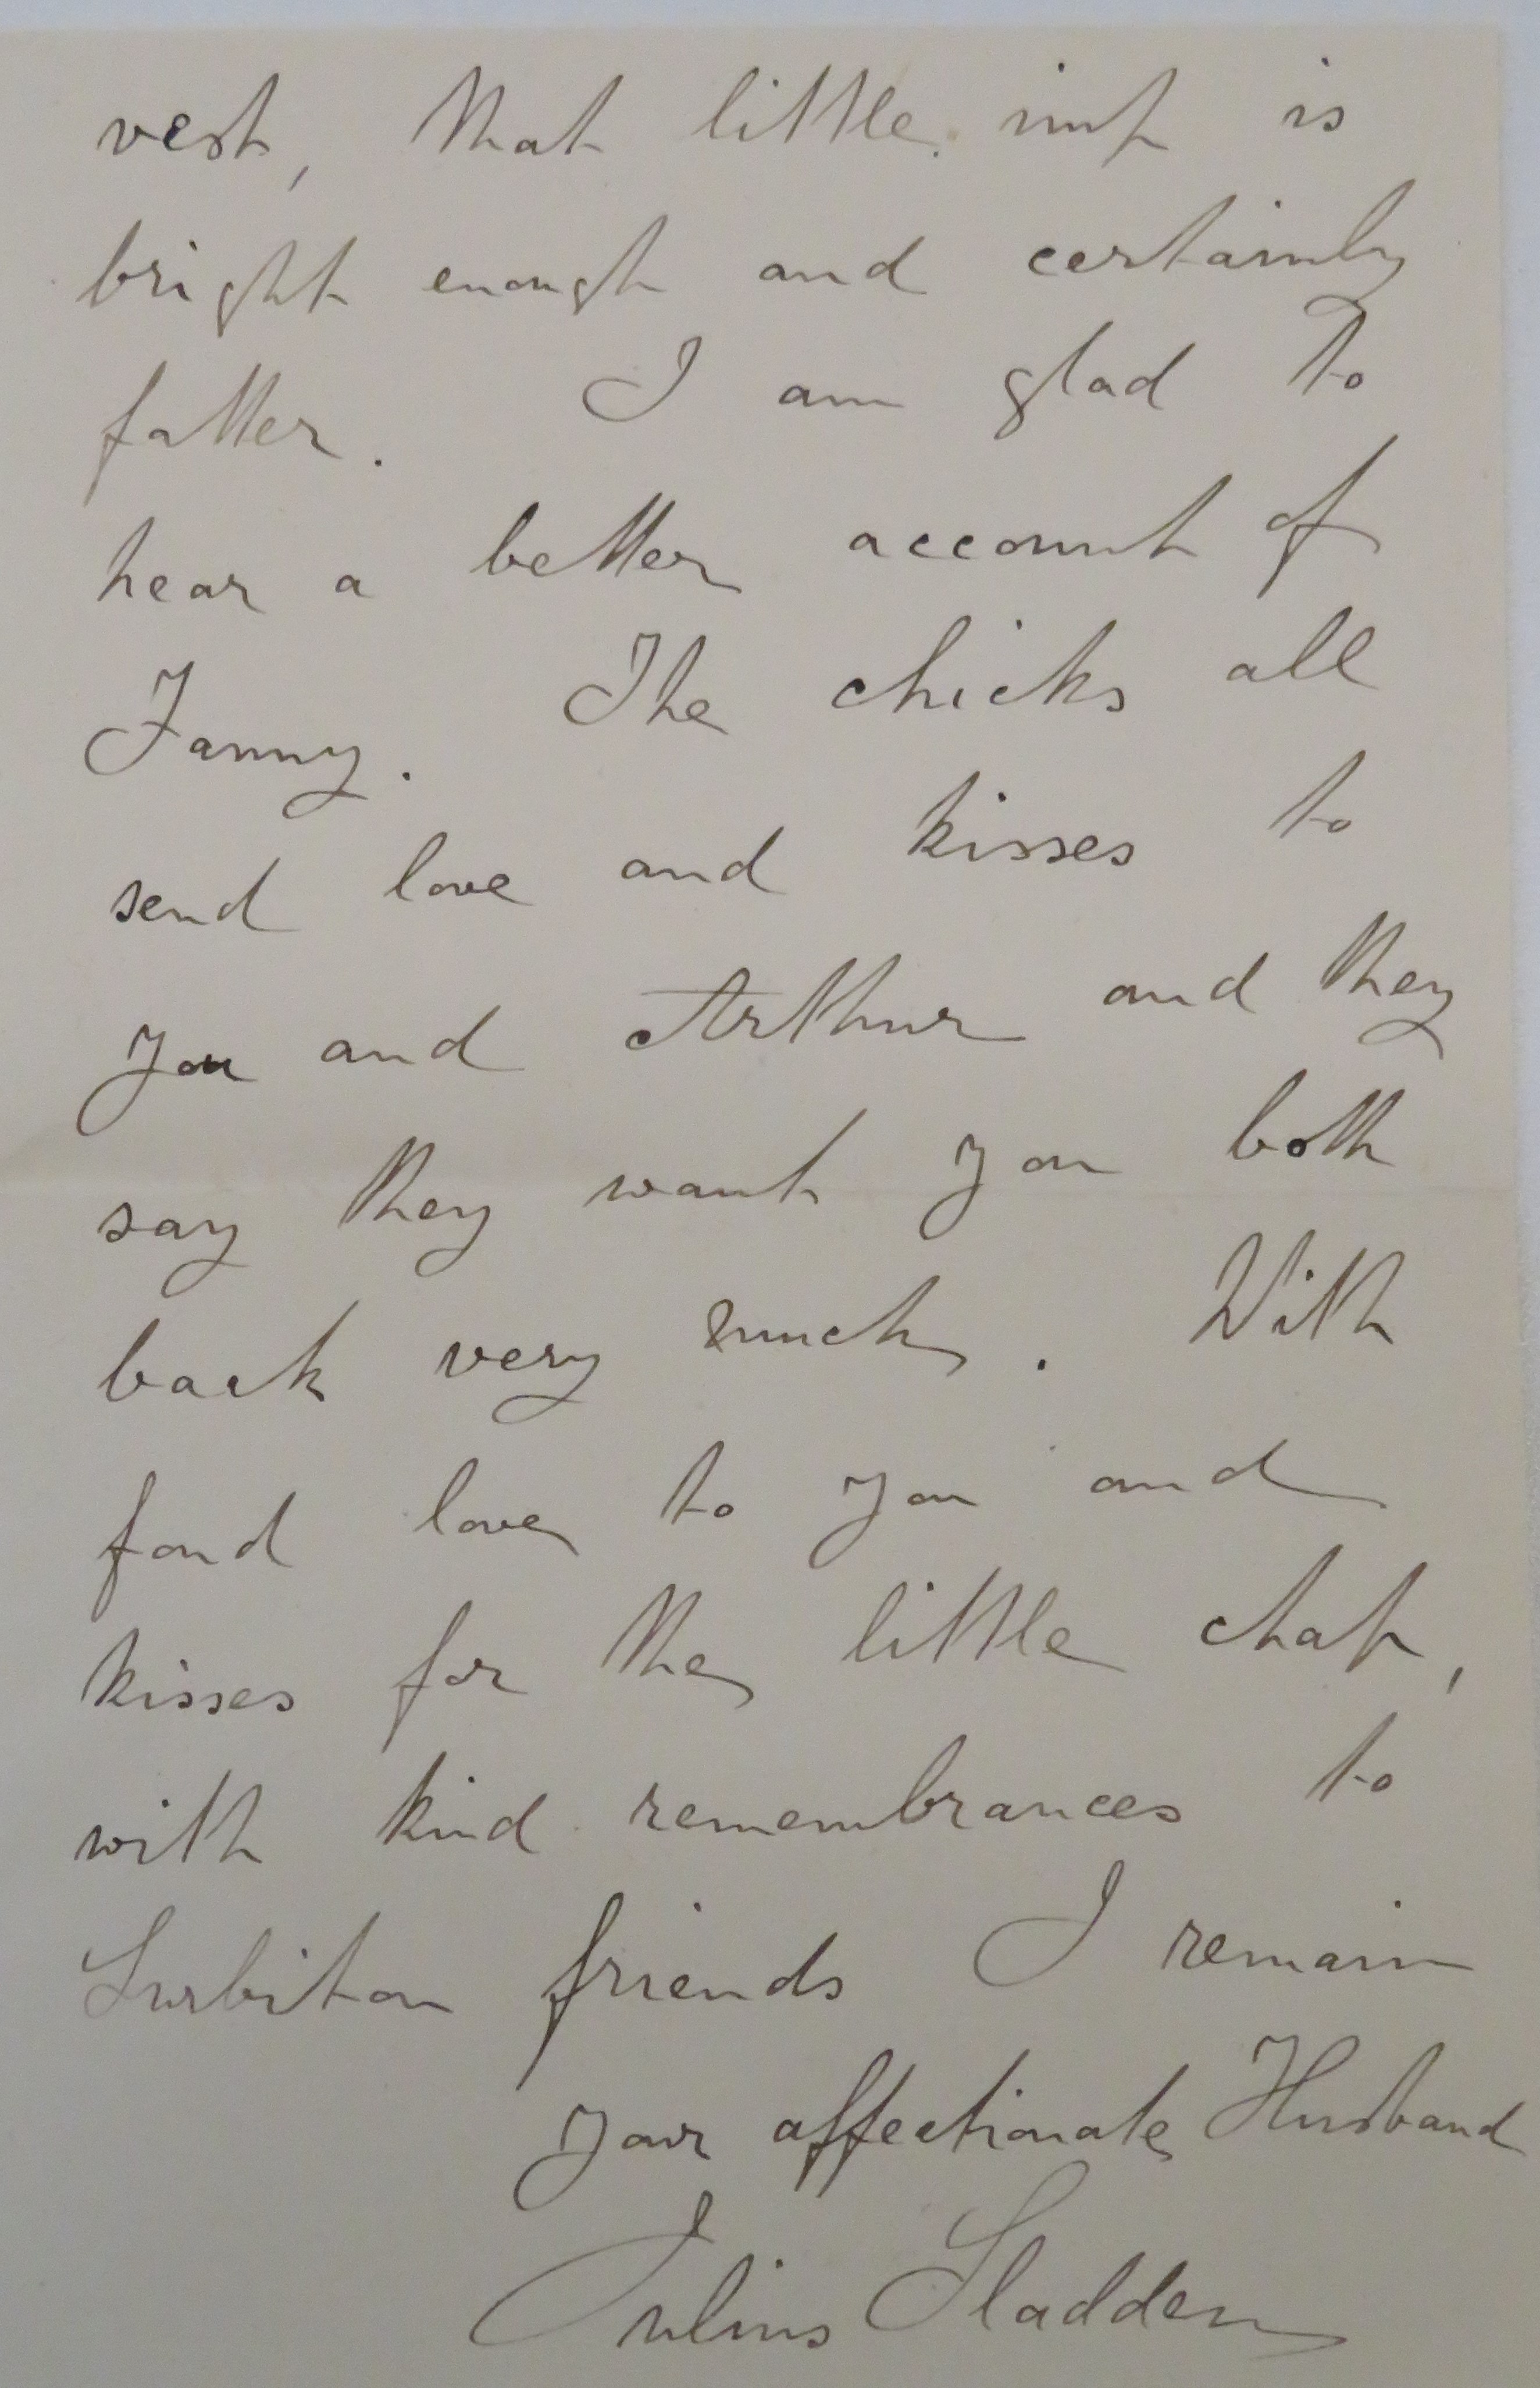 vest, that little imp is
bright enough and certainly
fatter. I am glad to
hear a better account of
Fanny. The chicks all
send love and kisses to
you and Arthur and they
say they want you both
back very much. With
fond love to you and
kisses for the little chap,
with kind remembrances to
Surbiton friends I remain
your affectionate Husband
Julius Sladden